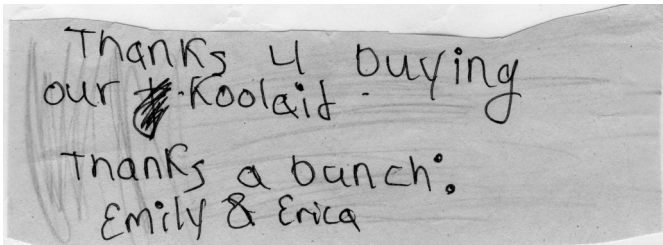 Thanks 4 buying
our Koolaid.
Thanks a bunch:
Emily & Erica